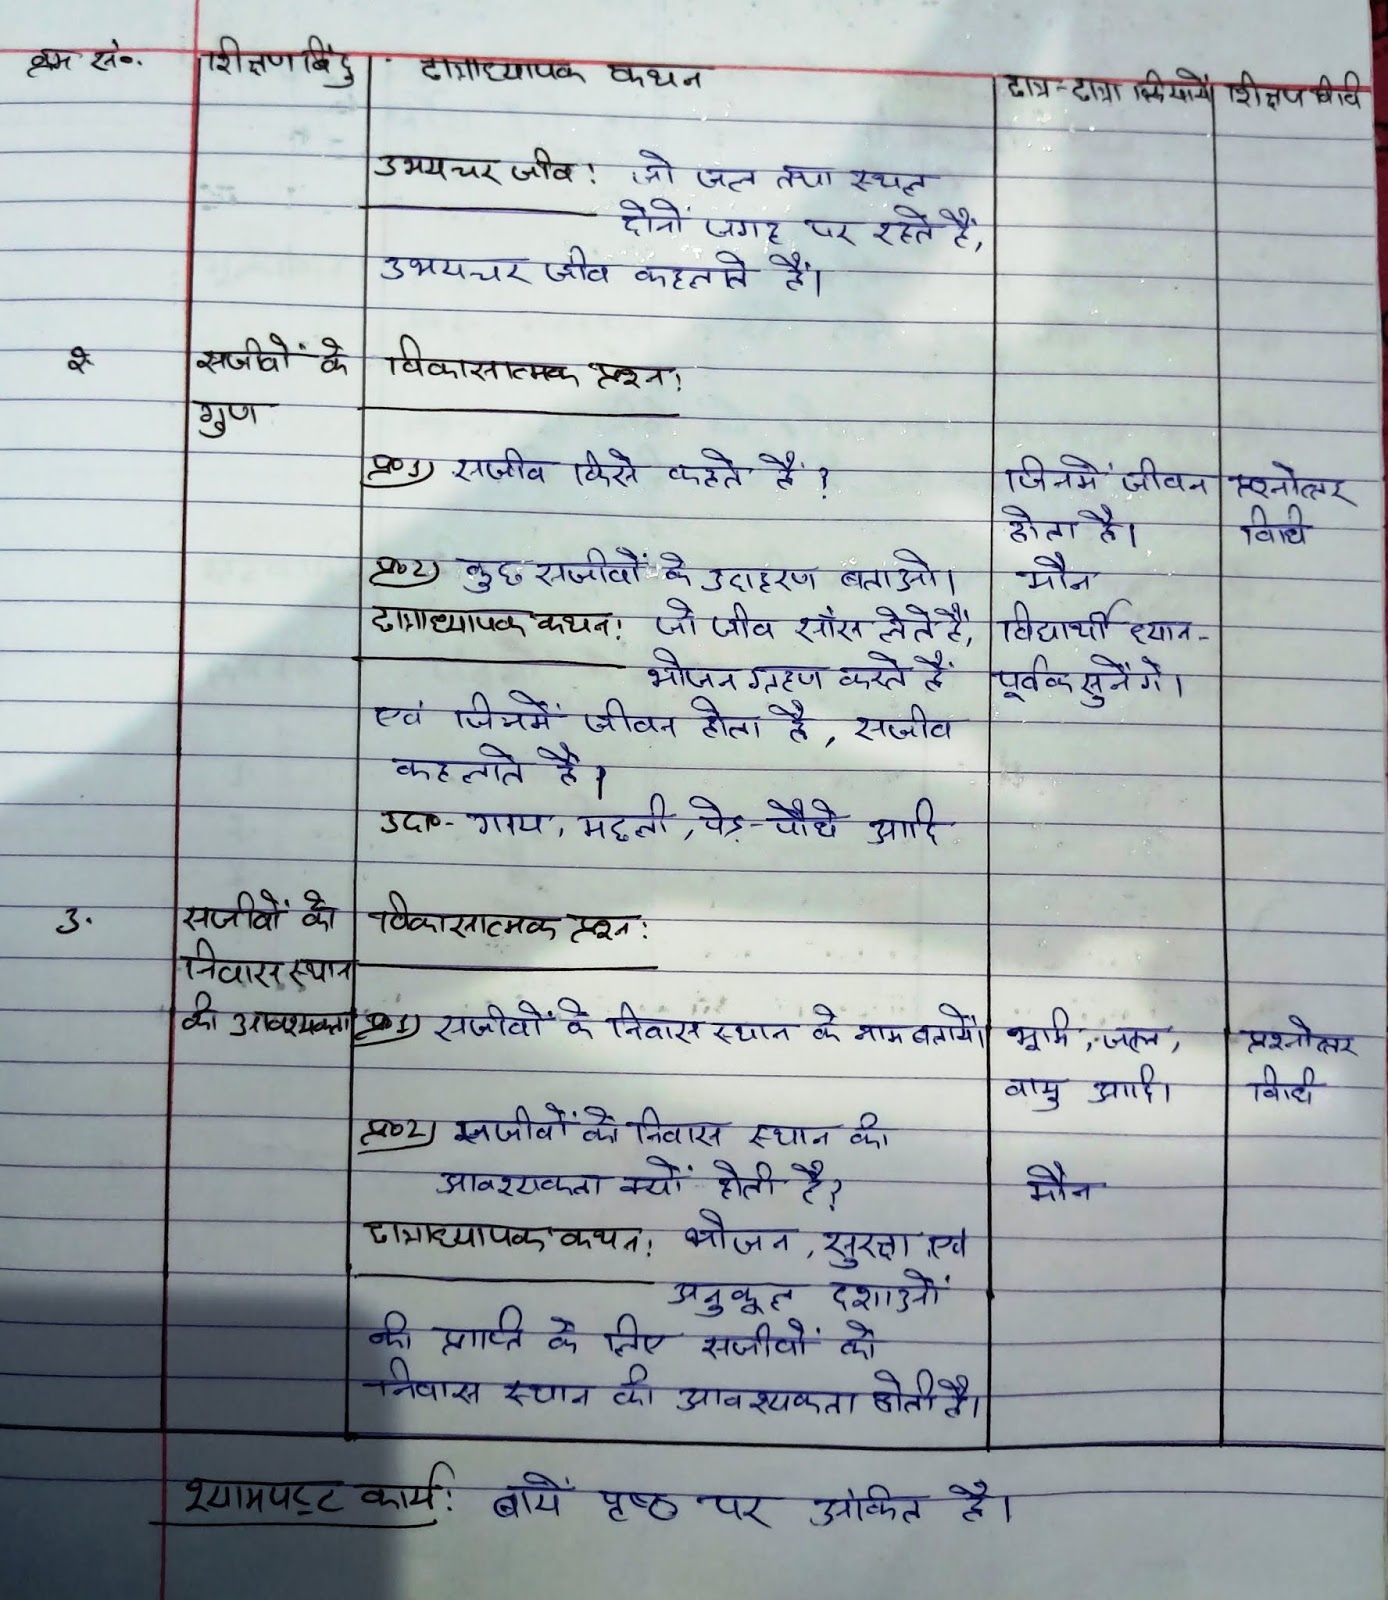 क्रम सं०. शिक्षण बिंदु छात्राध्यापक कथन छात्र-छात्रा क्रियायें शिक्षण विधि
उभयचर जीव: जो जल तथा स्थल
दोनों जगह पर रहते हैं,
उभयचर जीव कहलाते हैं।
2. सजीवों के विकासात्मक प्रश्न:
गुण
प्र०1) सजीव किसे कहते हैं? जिनमें जीवन प्रश्नोत्तर
होता है। विधि
प्र०2) कुछ सजीवों के उदाहरण बताओ। मौन
छात्राध्यापक कथन: जो जीव साँस लेते हैं, विद्यार्थी ध्यान-
भोजन ग्रहण करते हैं पूर्वक सुनेंगे।
एवं जिनमें जीवन होता है, सजीव
कहलाते हैं।
उदा०- गाय, मछली, पेड़-पौधे आदि
3. सजीवों को विकासात्मक प्रश्न:
निवास स्थान
की आवश्यकता प्र०1) सजीवों के निवास स्थान के नाम बतायें। भूमि, जल, प्रश्नोत्तर
वायु आदि। विधि
प्र०2) सजीवों को निवास स्थान की
आवश्यकता क्यों होती है? मौन
छात्राध्यापक कथन: भोजन, सुरक्षा एवं
अनुकूल दशाओं
की प्राप्ति के लिए सजीवों को
निवास स्थान की आवश्यकता होती है।
श्यामपट्ट कार्य: बायें पृष्ठ पर अंकित है।